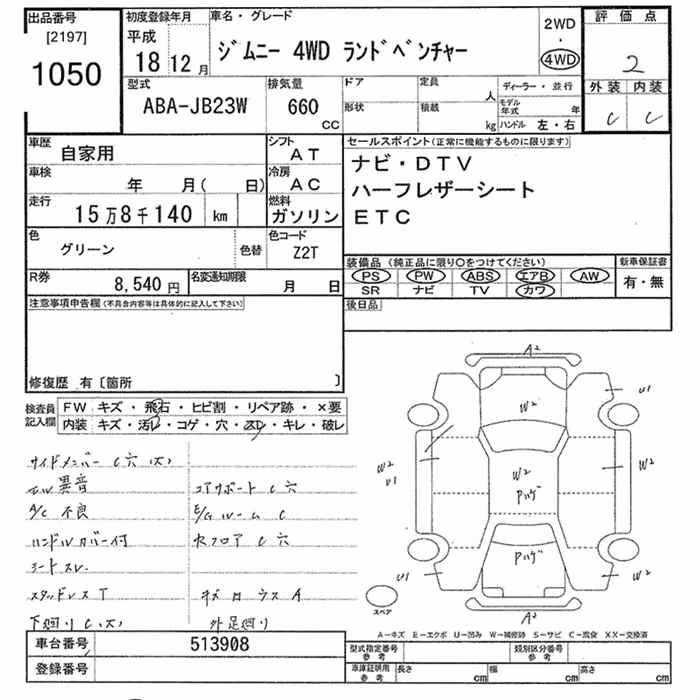 出品番号
[2197]
1050
初度登録年月
平成
18 12月
車名・グレード
ジムニー 4WD ランドベンチャー
2WD
・
4WD
評価点
2
外装 内装
C C
型式
ABA-JB23W
排気量
660
CC
ドア
形状
定員
人
積載
kg
ディーラー・並行
モデル年式 年
ハンドル 左・右
車歴
自家用
シフト
AT
車検
年 月( 日)
冷房
AC
走行
15万8千140 km
燃料
ガソリン
色
グリーン
色替
色コード
Z2T
R券
8,540円
名変通知期限
月 日
セールスポイント(正常に機能するものに限ります)
ナビ・DTV
ハーフレザーシート
ETC
装備品(純正品に限り○をつけてください)
PS PW ABS エアB AW
SR ナビ TV カワ
新車保証書
有・無
後日品
注意事項申告欄(不具合内容等は具体的に記入して下さい)
修復歴 有〔箇所 〕
検査員
記入欄
FW キズ・飛石・ヒビ割・リペア跡・×要
内装 キズ・汚レ・コゲ・穴・スレ・キレ・破レ
サイドメンバー C穴(大)
異音
コアサポート C穴
A/C 不良
E/Gルーム C
ハンドルカバー付
フロア C穴
シートスレ
スタッドレスT
A
下廻り C(大)
外足廻り
A2
U1
W2
W2
U1
W2
Pハゲ
W2
Pハゲ
U1
W2
A2
スペア
A−キズ E−エクボ U−凹み W−補修跡 S−サビ C−腐食 XX−交換済
車台番号
513908
登録番号
型式指定番号
参考
類別区分番号
参考
車庫証明用
参考
長さ cm
幅 cm
高さ cm